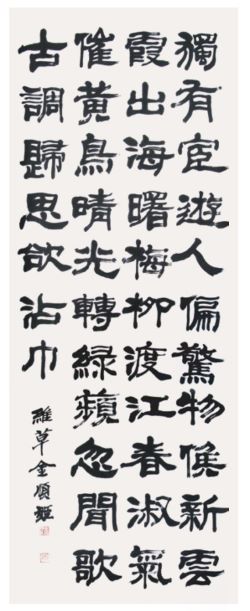 獨有宦遊人偏驚物候新雲
霞出海曙梅柳渡江春淑氣
催黃鳥晴光轉綠蘋忽聞歌
古調歸思欲沾巾
草金順